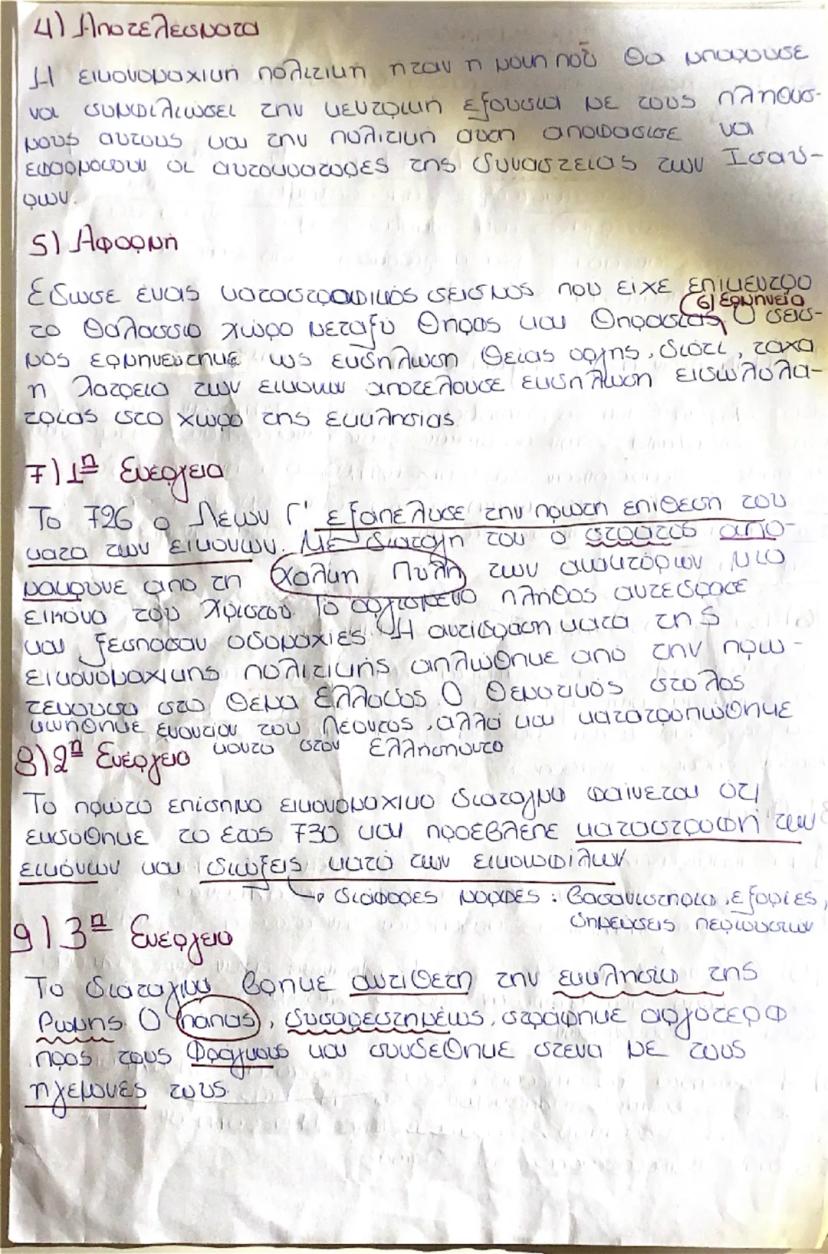 4) Αποτελεσματα
Η εικονομαχικη πολιτικη ηταν η μονη που θα μπορουσε
να συμφιλιωσει την κεντρικη εξουσια με τους πληθυσ-
μους αυτους και την πολιτικη αυτη αποφασισε να
εφαρμοσουν οι αυτοκρατορες της δυναστειας των Ισαυ-
ρων.
5) Αφορμη
Εδωσε ενας καταστροφικος σεισμος που ειχε επικεντρο
6) ερμηνεια
το θαλασσιο χωρο μεταξυ Θηρας και Θηρασιας, Ο σεισ-
μος ερμηνευτηκε ως εκδηλωση θειας οργης, διοτι, ταχα
η λατρεια των εικονων αποτελουσε εκδηλωση ειδωλολα-
τριας στο χωρο της εκκλησιας.
7) 1η Ενεργεια
Το 726 ο Λεων Γ' εξαπελυσε την πρωτη επιθεση του
κατα των εικονων. Με διαταγη του ο στρατος απο-
μακρυνε απο τη Χαλκη Πυλη των ανακτορων μια
εικονα του Χριστου Το οργισμενο πληθος αντεδρασε
και ξεσπασαν οδομαχιες Η αντιδραση κατα της
εικονομαχικης πολιτικης απλωθηκε απο την πρω-
τευουσα στο Θεμα Ελλαδος Ο Θεματικος στολος
κινηθηκε εναντιον του Λεοντος, αλλα και κατατροπωθηκε
8) 2η Ενεργεια κοντα στον Ελλησποντο
Το πρωτο επισημο εικονομαχικο διαταγμα φαινεται οτι
εκδοθηκε το ετος 730 και προεβλεπε καταστροφη των
εικονων και διωξεις κατα των εικονοφιλων
→ διαφορες μορφες : βασανιστηρια, εξοριες,
δημευσεις περιουσιων
9) 3η Ενεργεια
Το διαταγμα βρηκε αντιθετη την εκκλησια της
Ρωμης Ο παπας, δυσαρεστημενος, στραφηκε αργοτερα
προς τους Φραγκους και συνδεθηκε στενα με τους
ηγεμονες τους.